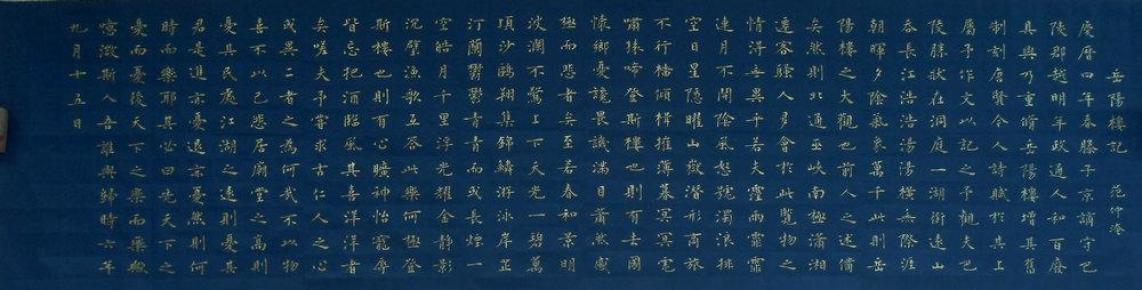 岳陽樓記 范仲淹
慶曆四年春滕子京謫守巴
陵郡越明年政通人和百廢
具興乃重脩岳陽樓增其舊
制刻唐賢今人詩賦於其上
屬予作文以記之予觀夫巴
陵勝狀在洞庭一湖銜遠山
吞長江浩浩湯湯橫無際涯
朝暉夕陰氣象萬千此則岳
陽樓之大觀也前人之述備
矣然則北通巫峽南極瀟湘
遷客騷人多會於此覽物之
情得無異乎若夫霪雨霏霏
連月不開陰風怒號濁浪排
空日星隱曜山嶽潛形商旅
不行檣傾楫摧薄暮冥冥虎
嘯猿啼登斯樓也則有去國
懷鄉憂讒畏譏滿目蕭然感
極而悲者矣至若春和景明
波瀾不驚上下天光一碧萬
頃沙鷗翔集錦鱗游泳岸芷
汀蘭鬱鬱青青而或長煙一
空皓月千里浮光耀金靜影
沉璧漁歌互答此樂何極登
斯樓也則有心曠神怡寵辱
皆忘把酒臨風其喜洋洋者
矣嗟夫予嘗求古仁人之心
或異二者之為何哉不以物
喜不以己悲居廟堂之高則
憂其民處江湖之遠則憂其
君是進亦憂退亦憂然則何
時而樂耶其必曰先天下之
憂而憂後天下之樂而樂歟
噫微斯人吾誰與歸時六年
九月十五日